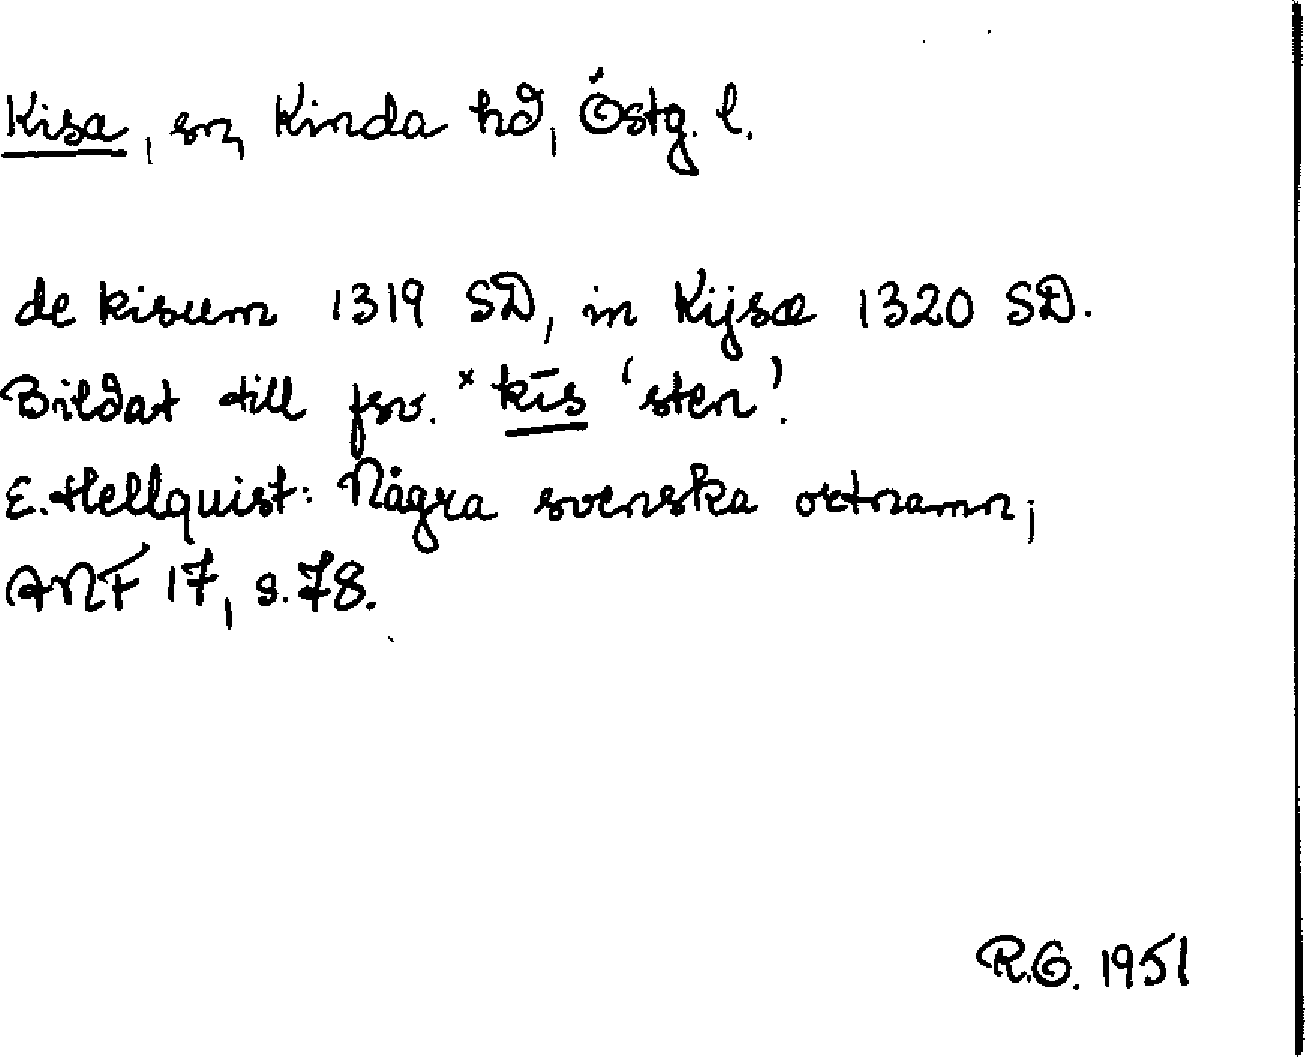 Kisa, sn, Kinda hd, Östg. l.
de kisum 1319 SD, in Kijsæ 1320 SD.
Bildat till fsv. *kīs 'sten'.
E. Hellquist: Några svenska ortnamn;
ANF 17, s. 78.
R.O. 1951